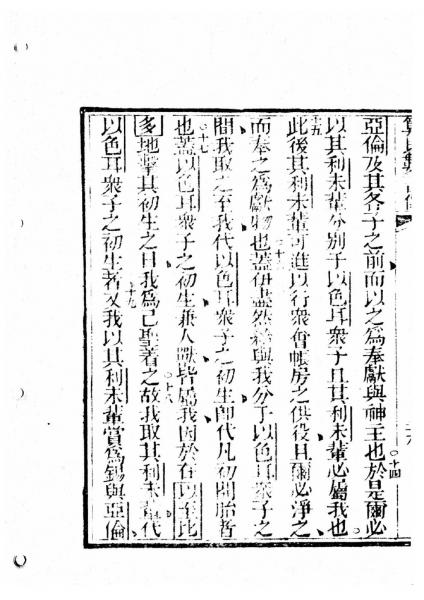 亞倫及其各子之前而以之為奉獻與神王也於是爾必
十四
以其利未輩分別于以色耳衆子且其利未輩必屬我也
十五
此後其利未輩可進以行衆會帳房之供役且爾必淨之
而奉之為獻物也蓋伊盡然給與我分于以色耳衆子之
十六
間我取之至我代以色耳衆子之初生即代凡初開胎者
十七
也蓋以色耳衆子之初生兼人獸皆屬我因於在以至比
多地擊其初生之日我為己聖著之故我取其利未輩代
十八
以色耳衆子之初生者及我以其利未輩賞為錫與亞倫
十九